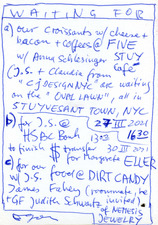 WAITING FOR
a) our croissants w/ cheese +
bacon + coffees @ FIVE
w/ Anna Schlesinger STUY Cafe
(J.S. + Claudia from
"CJ DESIGN NYC" are waiting
on the "OVAL LAWN", all in
STUYVESANT TOWN, NYC
b) for J.S. @ 27 III 2021
HSBC Bank 1630
to finish $ transfer 30 III 2021
$ for Margarete ELLER
c) for our
w/ J.S. food @ DIRT CANDY
James Fahey (roommate, be
+ GF Judith Schwartz invited)
of NEMESIS
JEWELRY